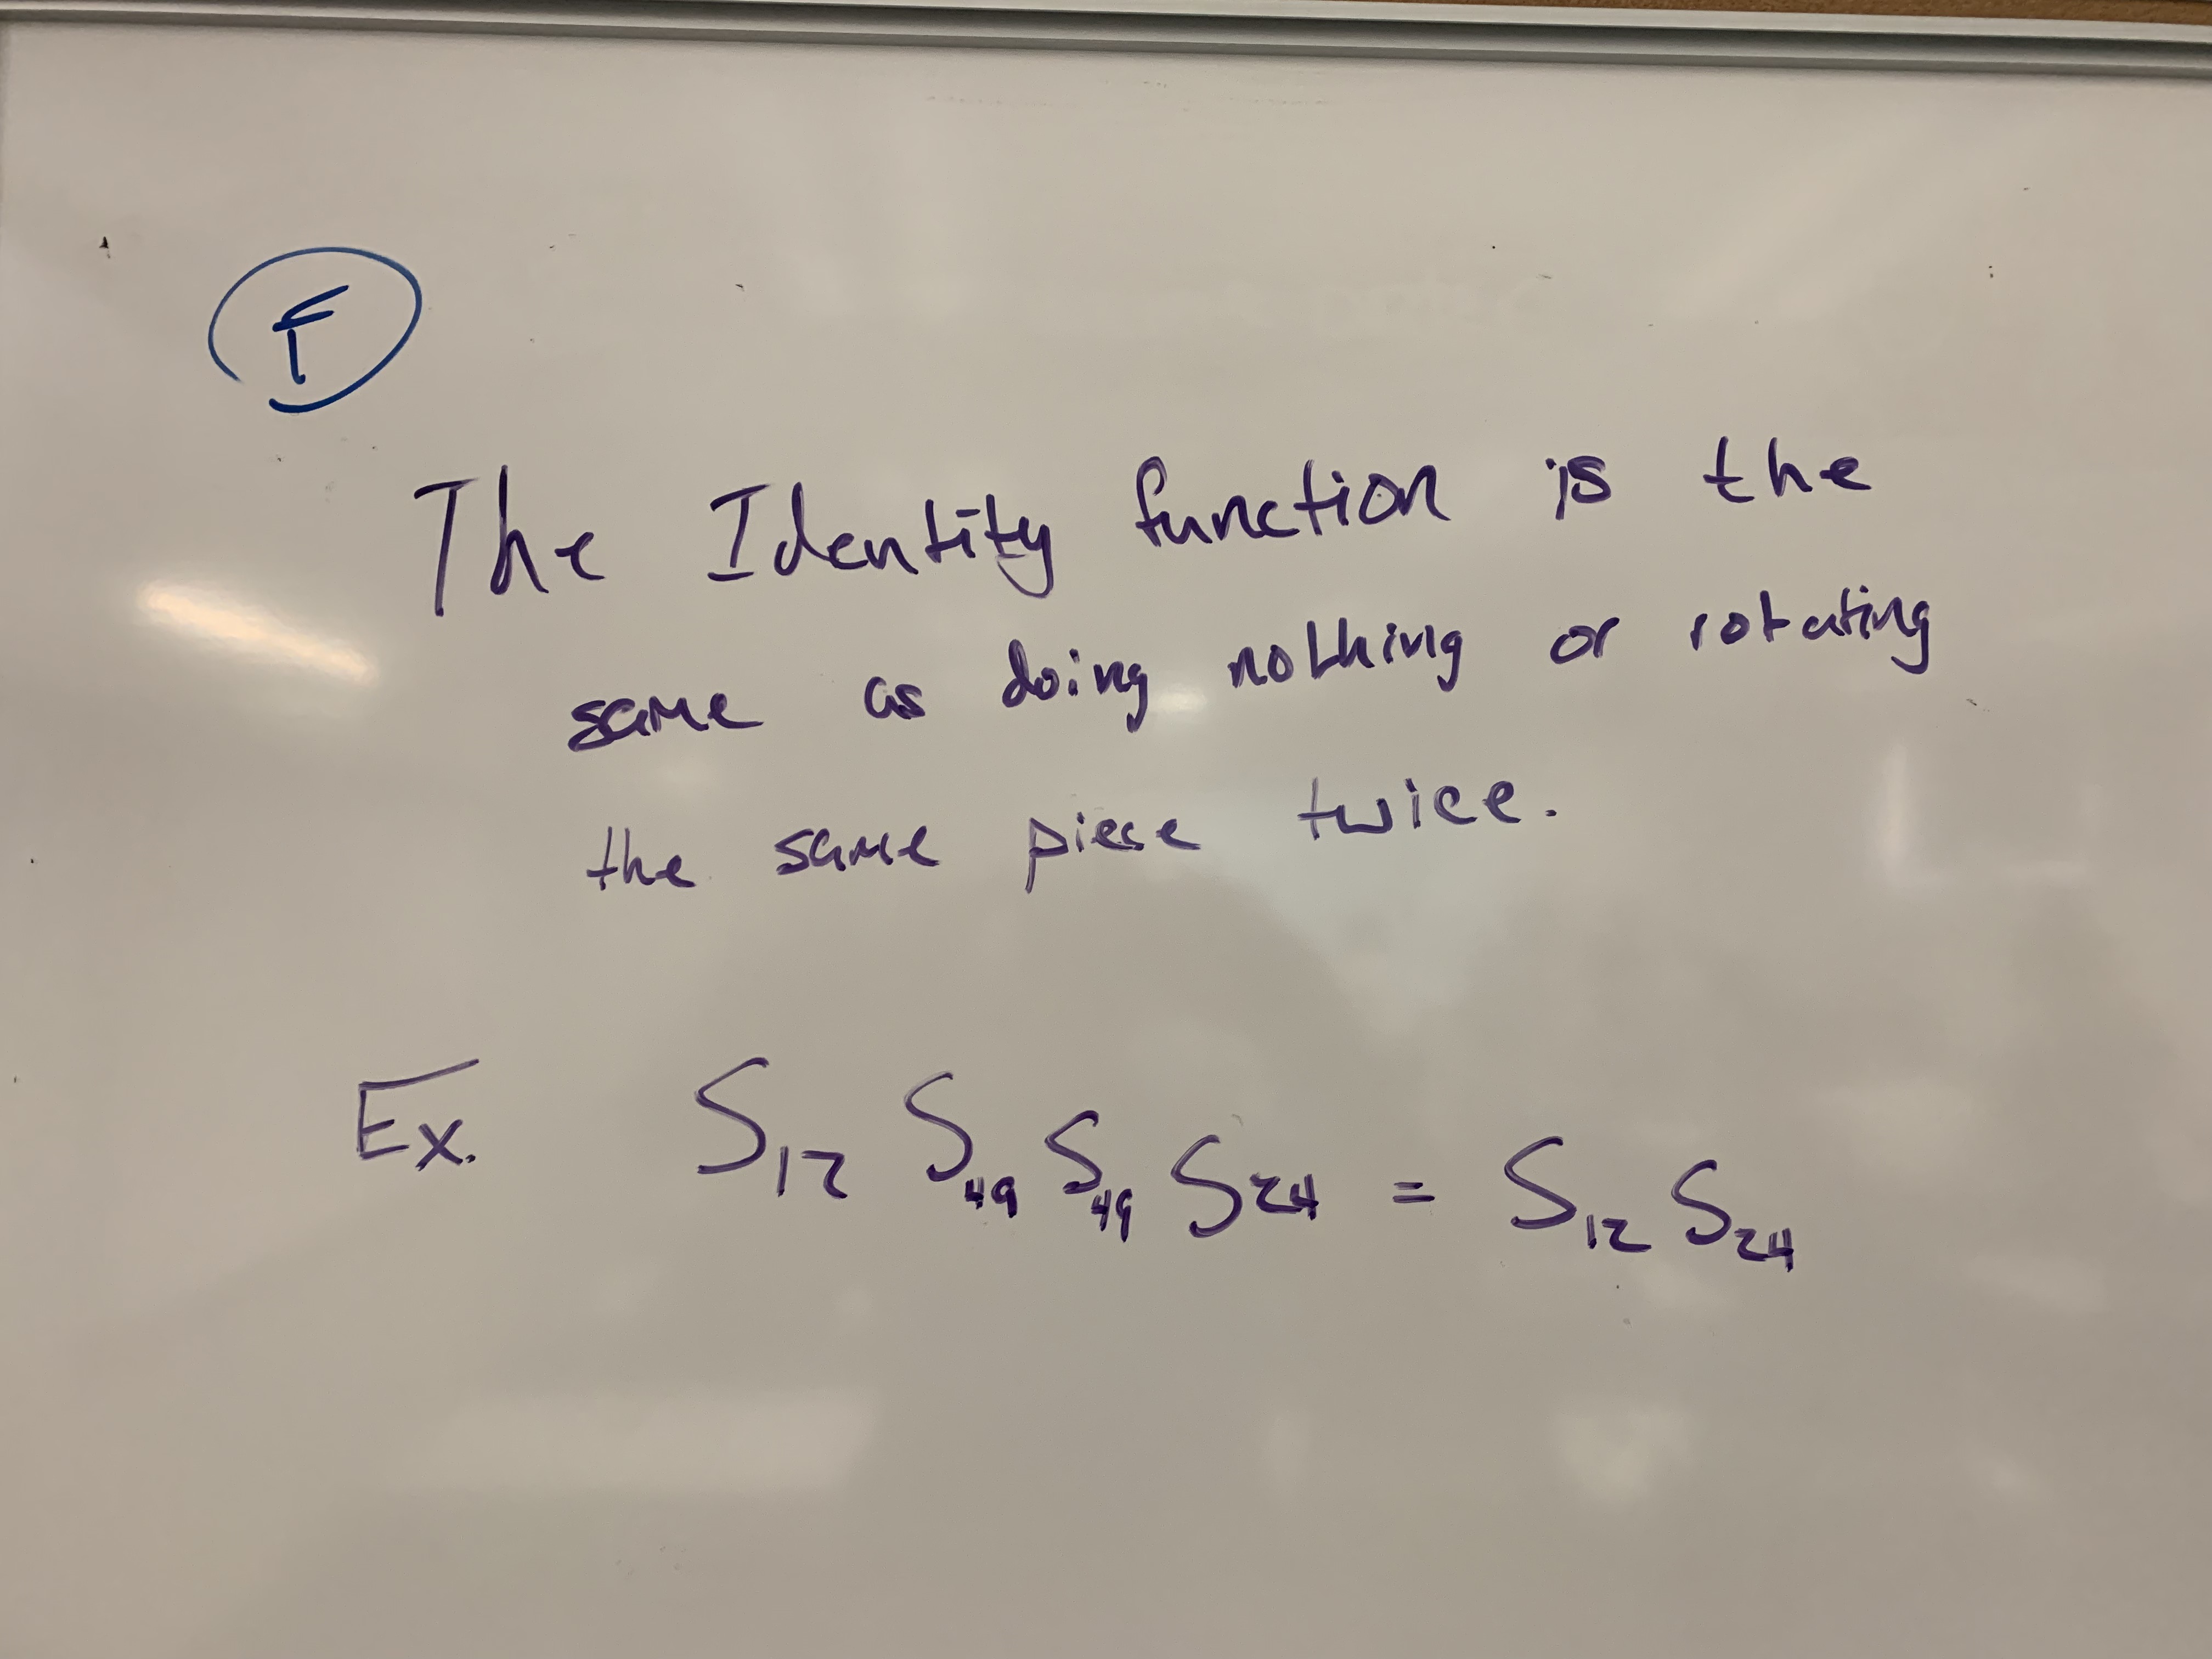 F
The Identity function is the
same as doing nothing or rotating
the same piece twice.
Ex. S₁₂ S₄₉ S₄₉ S₂₄ = S₁₂ S₂₄